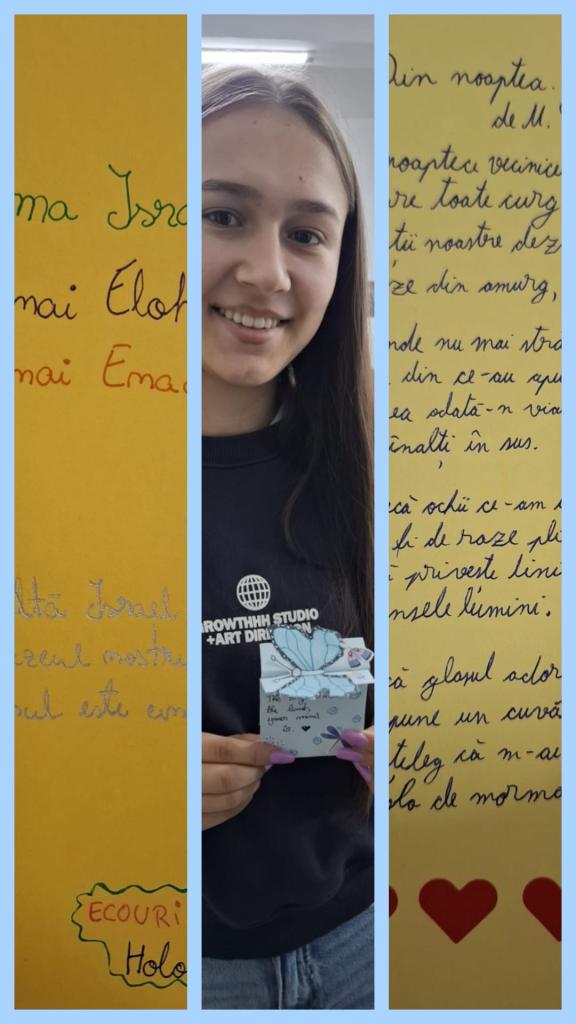 ma Isra
nai Eloh
nai Emac
ltă Israel
zeul nostru
ul este
ECOURI
Holo
ROWTHHH STUDIO
+ART DIR ON
The
the limit,
your mind
is.
Din noaptea
de M.
noaptea vecinice
re toate curg
tii noastre dez
ze din amurg,
nde nu mai stră
din ce-au apu
ea odată-n via
înalți în sus.
că ochii ce-am i
fi de raze pli
i privește lini
nsele lumini.
că glasul ador
pune un cuvâ
țeleg că m-au
lo de morm